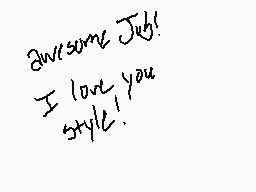 awesome Jub!
I love you
style!